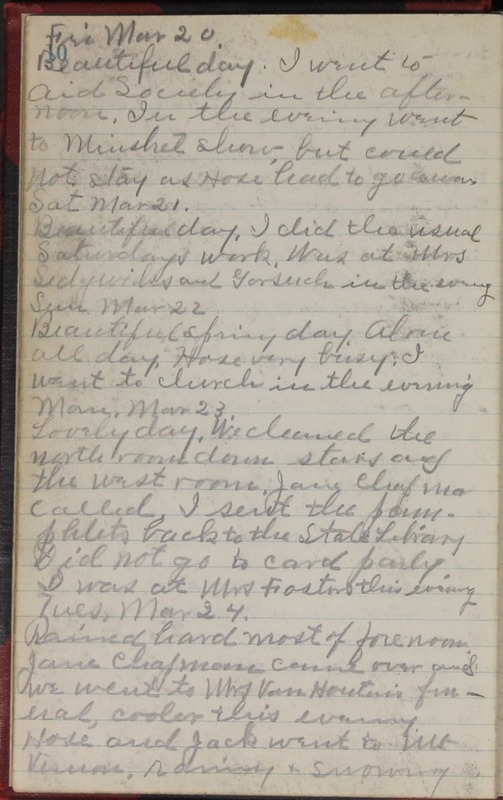 Fri Mar 20
10
Beautiful day. I went to
Aid Society in the after-
noon. In the evening went
to Minstrel show, but could
not stay as Hose had to go away
Sat Mar 21.
Beautiful day, I did the usual
Saturdays work. Was at Mrs
Sidgwicks and Gorsuch in the evening
Sun, Mar 22
Beautiful spring day. Alone
all day, Hose very busy, I
went to church in the evening
Mon, Mar 23
Lovely day, We cleaned the
north room down stairs and
the west room, Jane Chapman
called, I sent the pam-
phlets back to the State Library
Did not go to card party
I was at Mrs Fosters this evening
Tues, Mar 24.
Rained hard most of forenoon
Jane Chapman came over and
we went to Mrs Van Houten's fun-
eral, cooler this evening
Hose and Jack went to Mt
Vernon, raining & snowing